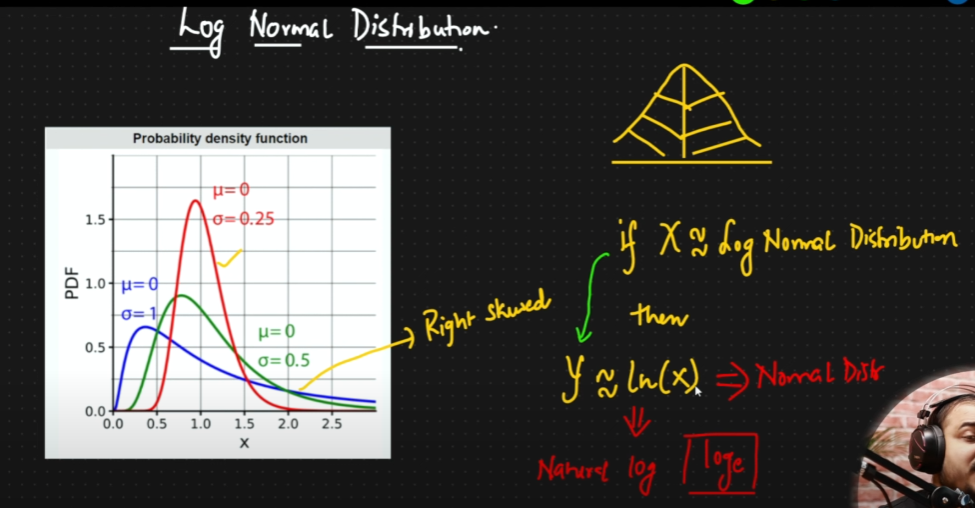 Log Normal Distribution.
Probability density function
μ=0
σ=0.25
μ=0
σ=1
μ=0
σ=0.5
PDF
1.5
1.0
0.5
0.0
0.0 0.5 1.0 1.5 2.0 2.5
x
Right skewed
if X ≈ Log Normal Distribution
then
Y ≈ ln(x) ⇒ Normal Distr
Natural log loge